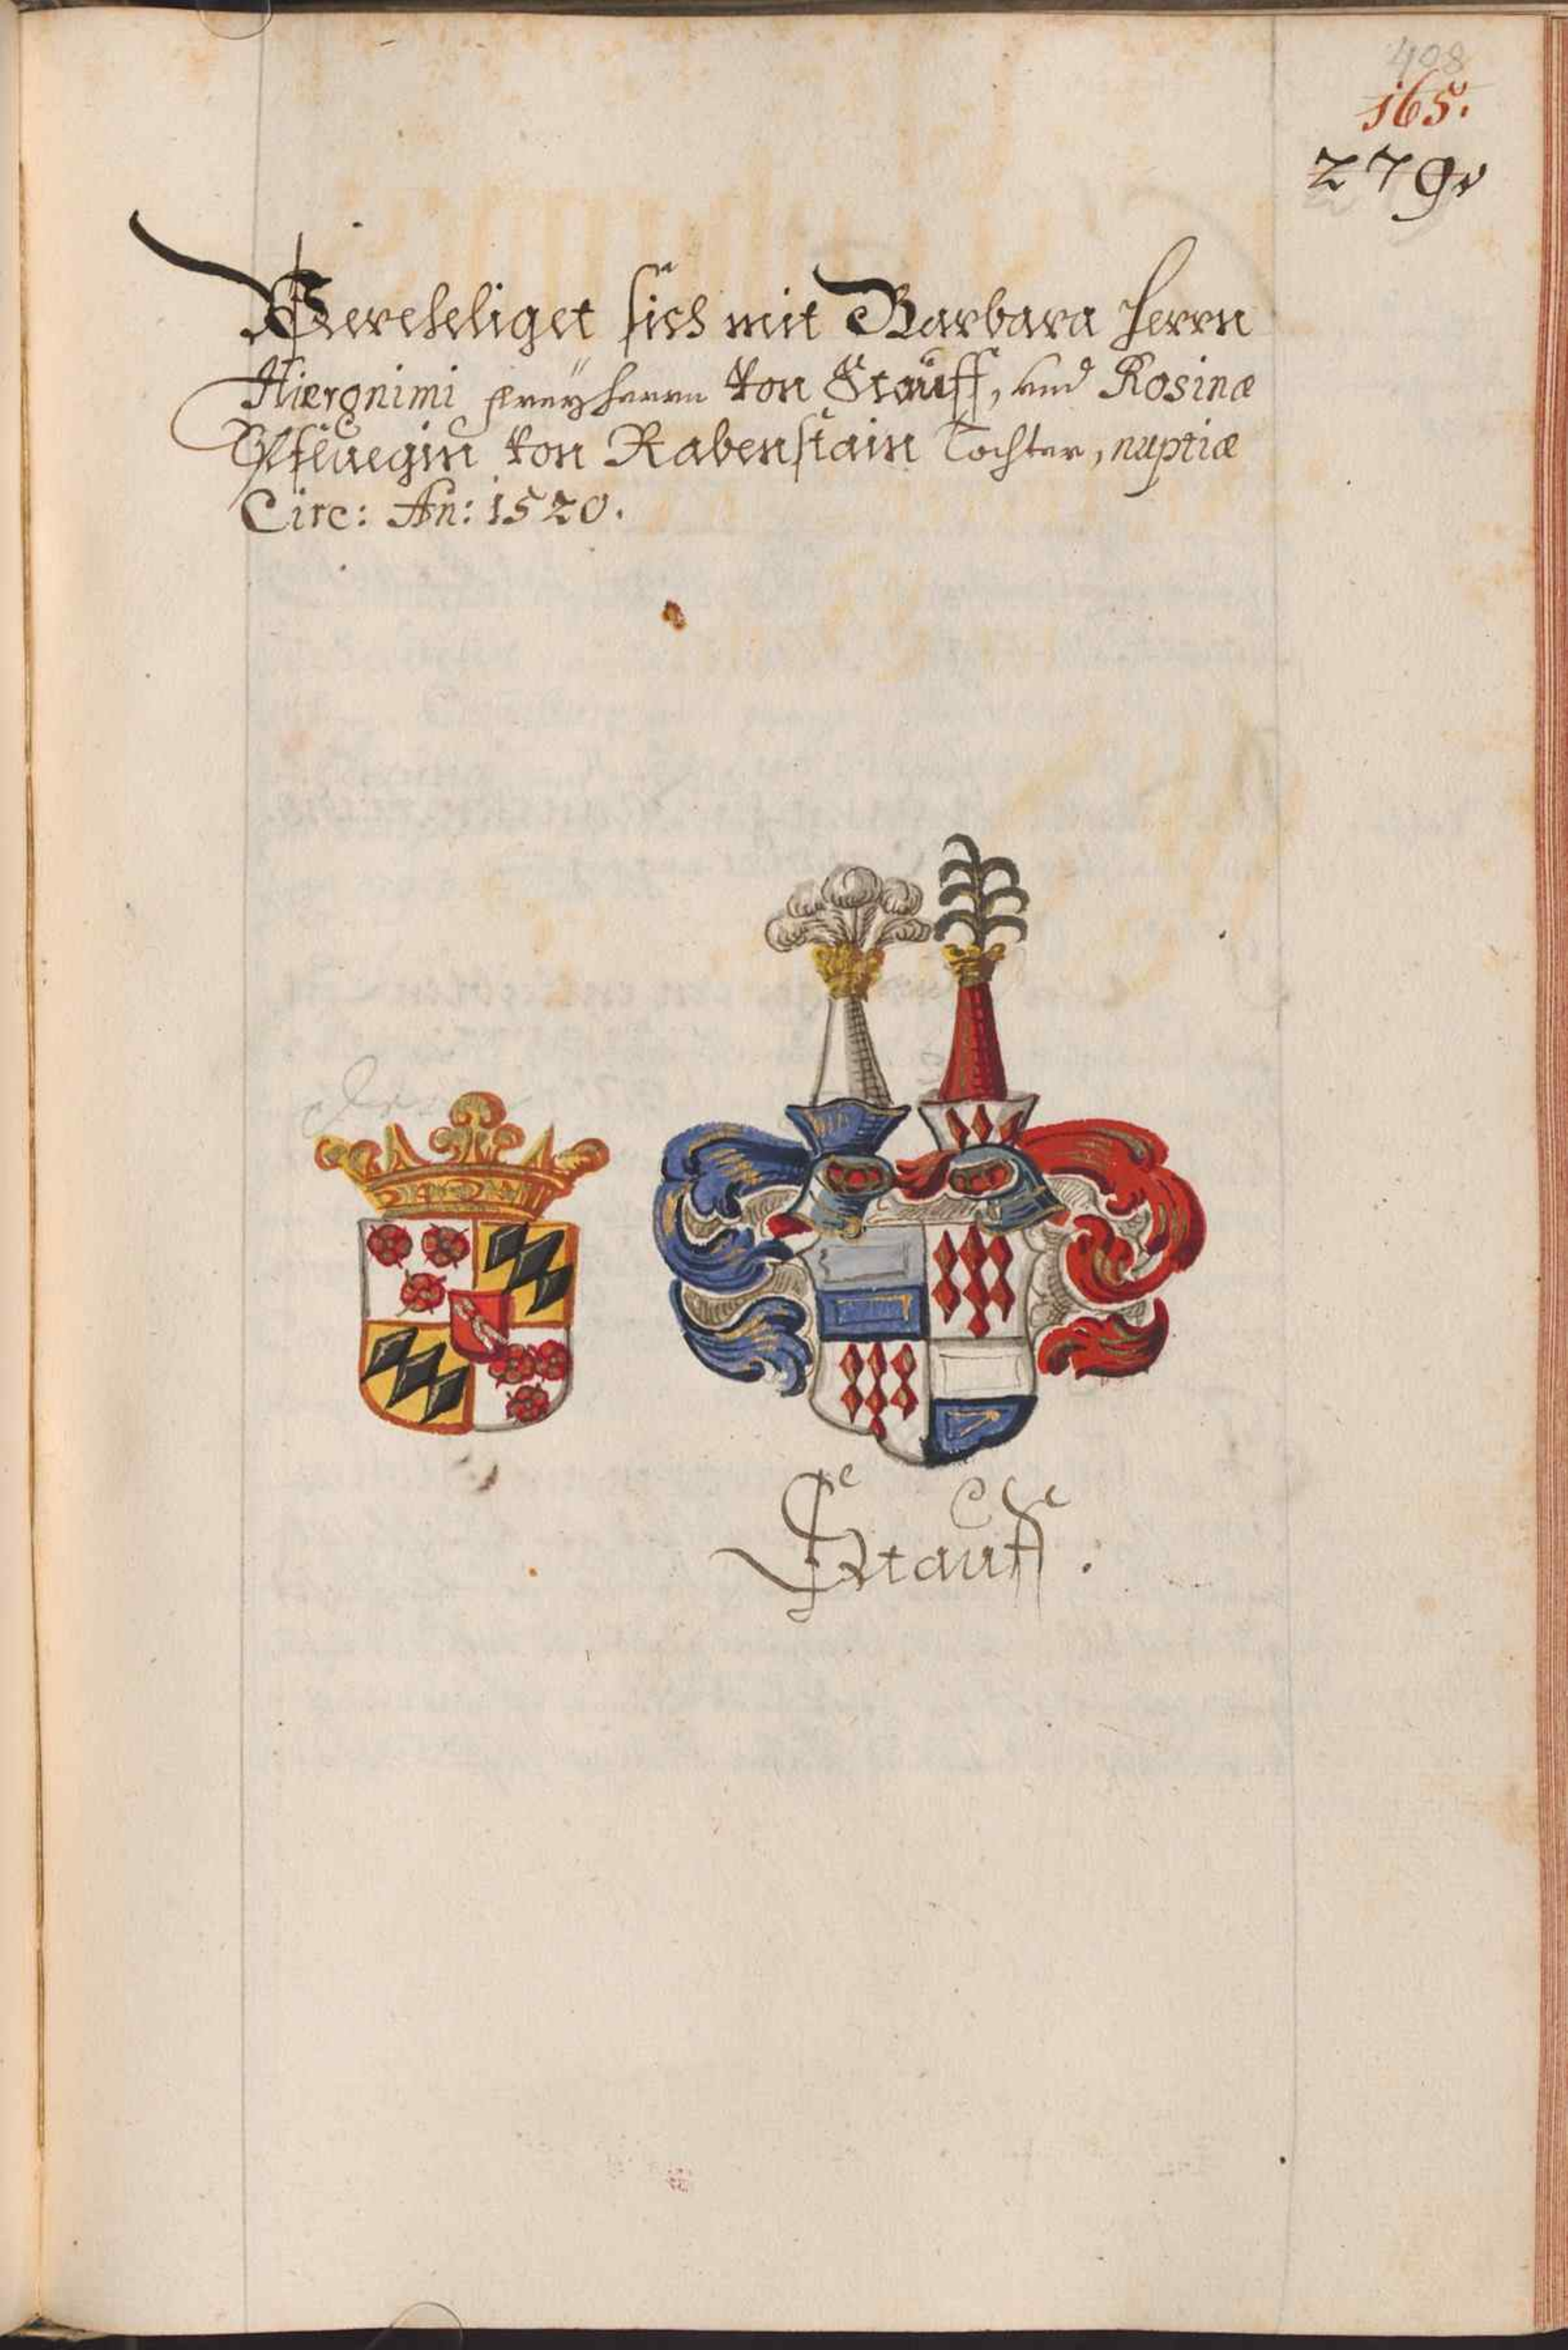 408
165.
279.
Vereheliget sich mit Barbara Herrn
Hieronimi Freÿherrn von Stauff, und Rosinæ
Pfluegin von Rabenstain Tochter, nuptiæ
Circ: An: 1520.
Stauff.